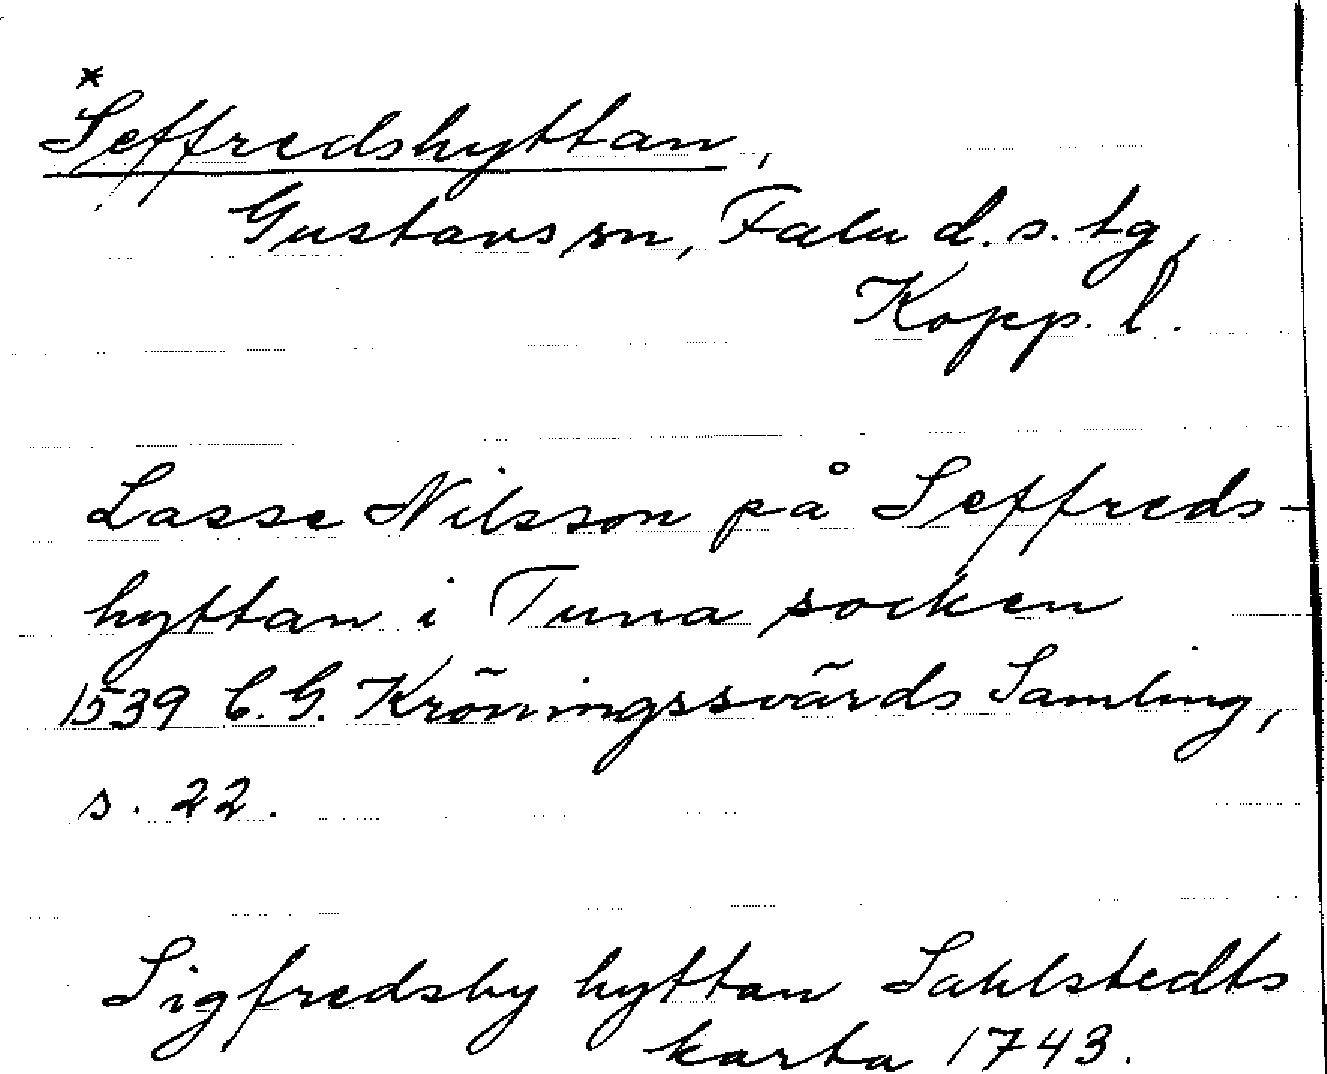 ×
Seffredshyttan,
Gustavs sn, Falu d.s. tg,
Kopp. l.
Lasse Nilsson på Seffreds-
hyttan i Tuna socken
1539 C.G. Kröningssvärds Samling,
s. 22.
Sigfredsby hyttan Sahlstedts
karta 1743.